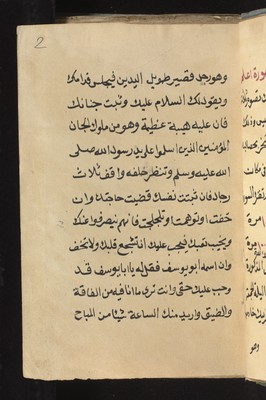 2
وهو رجل قصير طويل اليدين فيجلس قدامك
ويقول لك السلام عليك وثبت جنانك
فان عليه هيبة عظيمة وهو من ملوك الجان
المؤمنين الذين اسلموا على يد رسول الله صلى
الله عليه وسلم وتنظر خلفه واقف ثلاث
رجال فان ثبتت نفسك قضيت حاجتك وان
خفت او توهمت او تلجلجت فانهم ينصرفوا عنك
ويخيب تعبك فيجب عليك ان تشجع قلبك ولا تخف
وان اسمه ابو يوسف فقل له يا ابا يوسف قد
وجب عليك حقى وانت ترى ما انا فيه من الفاقة
والضيق واريد منك الساعة شيئا من المباح